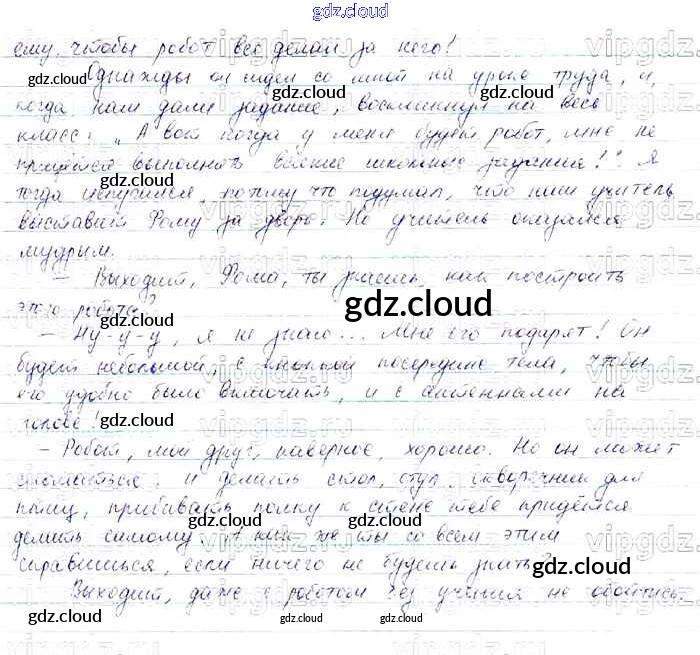 gdz.cloud
ему, чтобы робот все делал за него!
Однажды он сидел со мной на уроке труда, и,
когда нам дали задание, воскликнул на весь
класс: „А вот когда у меня будет робот, мне не
придется выполнять всякие школьные задания!“ Я
тогда испугался, потому что подумал, что наш учитель
выставит Рому за дверь. Но учитель оказался
мудрым.
– Выходит, Рома, ты знаешь, как построить
этого робота?
– Ну-у-у, я не знаю... Мне его подарят! Он
будет небольшой, с кнопкой посередине тела, чтобы
его удобно было включать, и с антеннами на
голове!
– Робот, мой друг, наверное, хорошо. Но он может
сломаться и делать стол, стул, скворечник для
птиц, прибивать полку к стене тебе придётся
делать самому. А как же ты со всем этим
справишься, если ничего не будешь знать?
Выходит, даже с роботом без учения не обойтись.
gdz.cloud
gdz.cloud
gdz.cloud
gdz.cloud
gdz.cloud
gdz.cloud
gdz.cloud
gdz.cloud
gdz.cloud
gdz.cloud
gdz.cloud
gdz.cloud
gdz.cloud
gdz.cloud